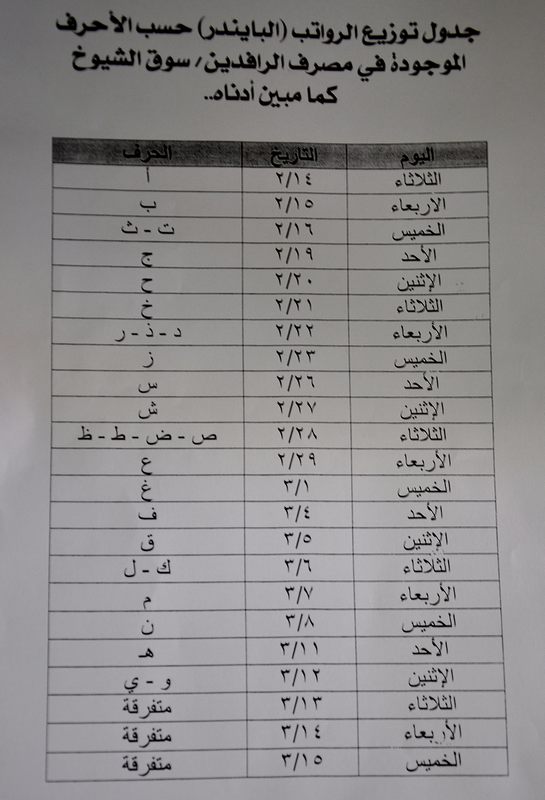 جدول توزيع الرواتب (البايندر) حسب الأحرف
الموجودة في مصرف الرافدين/ سوق الشيوخ
كما مبين أدناه..
اليوم التاريخ الحرف
الثلاثاء ٢/١٤ أ
الاربعاء ٢/١٥ ب
الخميس ٢/١٦ ت - ث
الأحد ٢/١٩ ج
الإثنين ٢/٢٠ ح
الثلاثاء ٢/٢١ خ
الأربعاء ٢/٢٢ د - ذ - ر
الخميس ٢/٢٣ ز
الأحد ٢/٢٦ س
الإثنين ٢/٢٧ ش
الثلاثاء ٢/٢٨ ص - ض - ط - ظ
الأربعاء ٢/٢٩ ع
الخميس ٣/١ غ
الأحد ٣/٤ ف
الإثنين ٣/٥ ق
الثلاثاء ٣/٦ ك - ل
الأربعاء ٣/٧ م
الخميس ٣/٨ ن
الأحد ٣/١١ هـ
الإثنين ٣/١٢ و - ي
الثلاثاء ٣/١٣ متفرقة
الأربعاء ٣/١٤ متفرقة
الخميس ٣/١٥ متفرقة